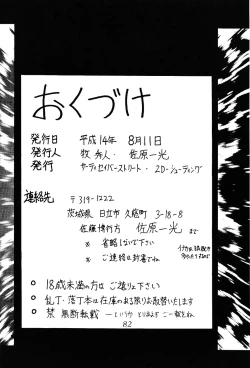 おくづけ
発行日 平成14年 8月11日
発行人 牧 秀人・佐原一光
発行 サーディセイバーストリート・2D-シューティング
連絡先 〒319-1222
茨城県 日立市 久慈町 3-18-8
佐藤博行方 佐原一光 まで
※ 省略しないで下さい
※ ご連絡は封書でね
○ 18歳未満の方は ご遠りょ下さい
○ 乱丁・落丁本は在庫のある限りお取替いたします
○ 禁 無断転載 ―というか とりあえず ご一報をね
82